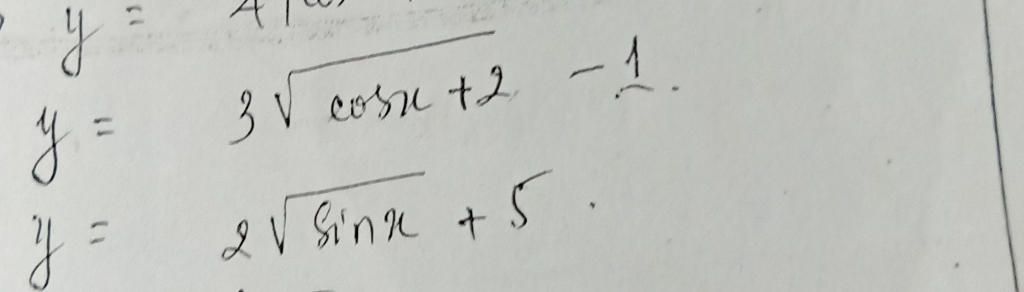 y =
y = 3√(cosx+2) - 1.
y = 2√(sinx) + 5.